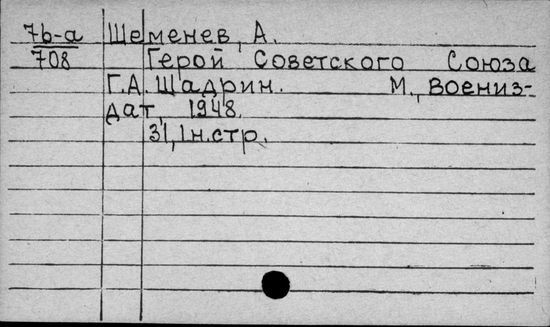 7b-a Шеменев, А.
708 Герой Советского Союза
Г.А. Шадрин. М., Воениз-
дат, 1948.
31, 1 н.стр.